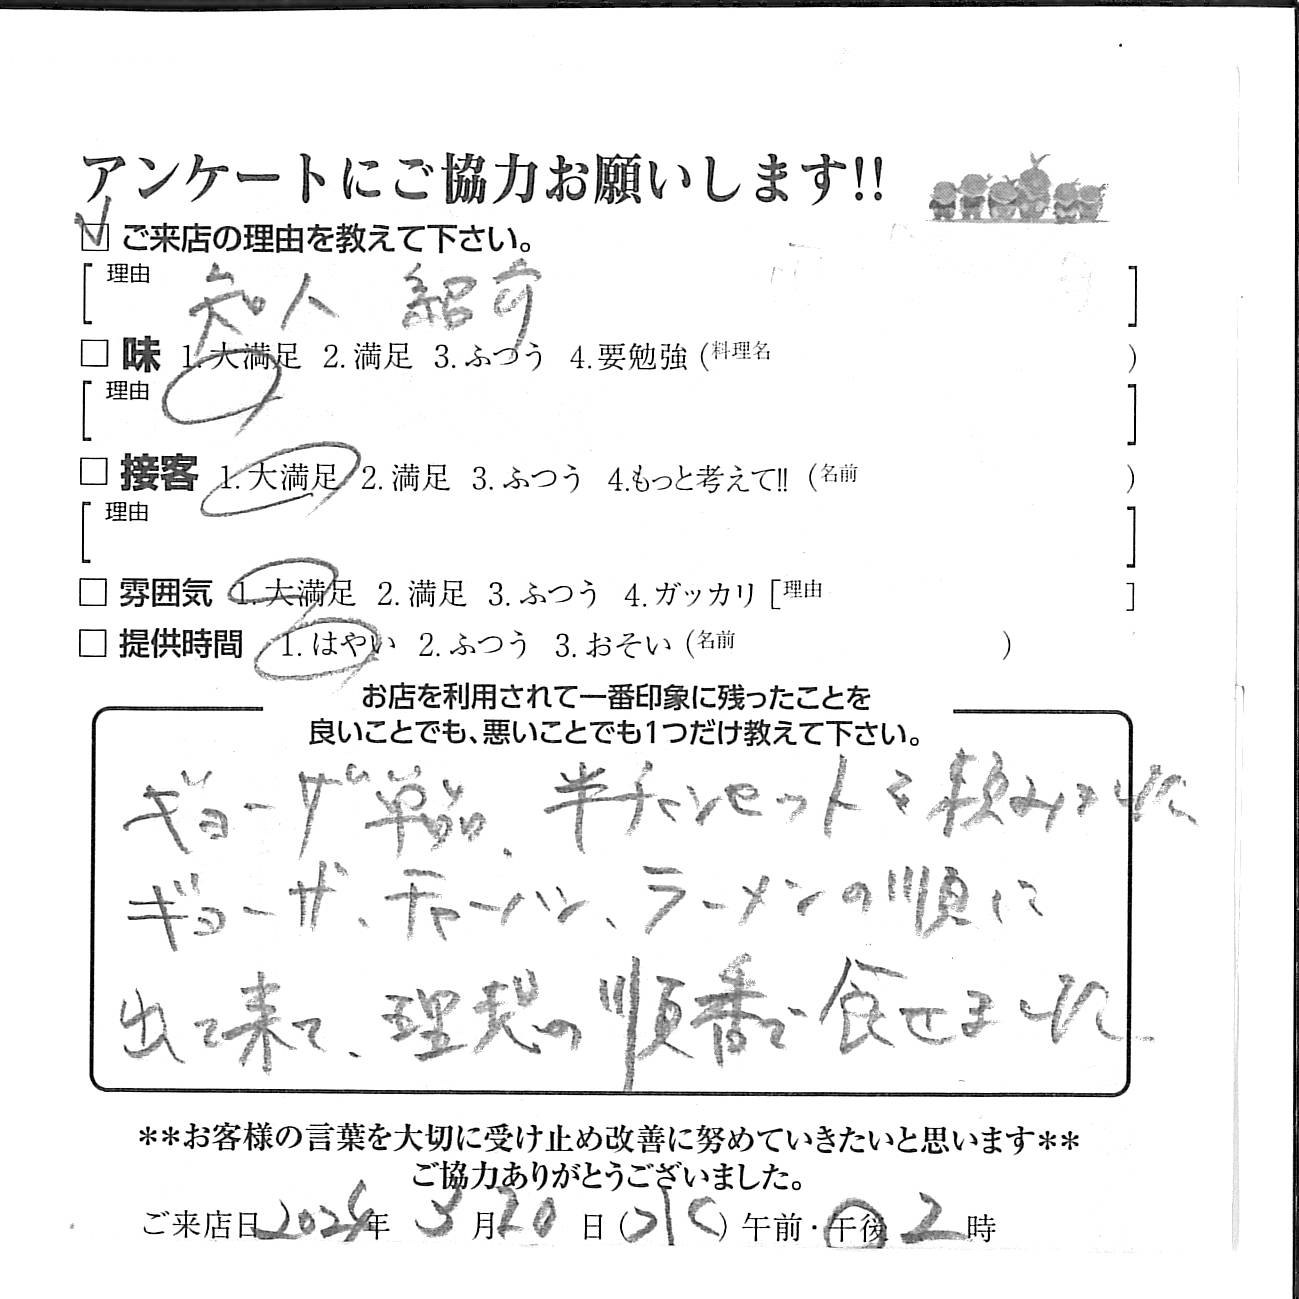 アンケートにご協力お願いします!!
□ ご来店の理由を教えて下さい。
[理由 知人 紹介 ]
□ 味 1.大満足 2.満足 3.ふつう 4.要勉強 (料理名 )
[理由 ]
□ 接客 1.大満足 2.満足 3.ふつう 4.もっと考えて!! (名前 )
[理由 ]
□ 雰囲気 1.大満足 2.満足 3.ふつう 4.ガッカリ [理由 ]
□ 提供時間 1.はやい 2.ふつう 3.おそい (名前 )
お店を利用されて一番印象に残ったことを
良いことでも、悪いことでも1つだけ教えて下さい。
ギョーザ単品、半チャンセットを頼みました
ギョーザ、チャーハン、ラーメンの順に
出て来て、理想の順番で食せました。
**お客様の言葉を大切に受け止め改善に努めていきたいと思います**
ご協力ありがとうございました。
ご来店日 2024年 3月20日(水) 午前・午後 2時